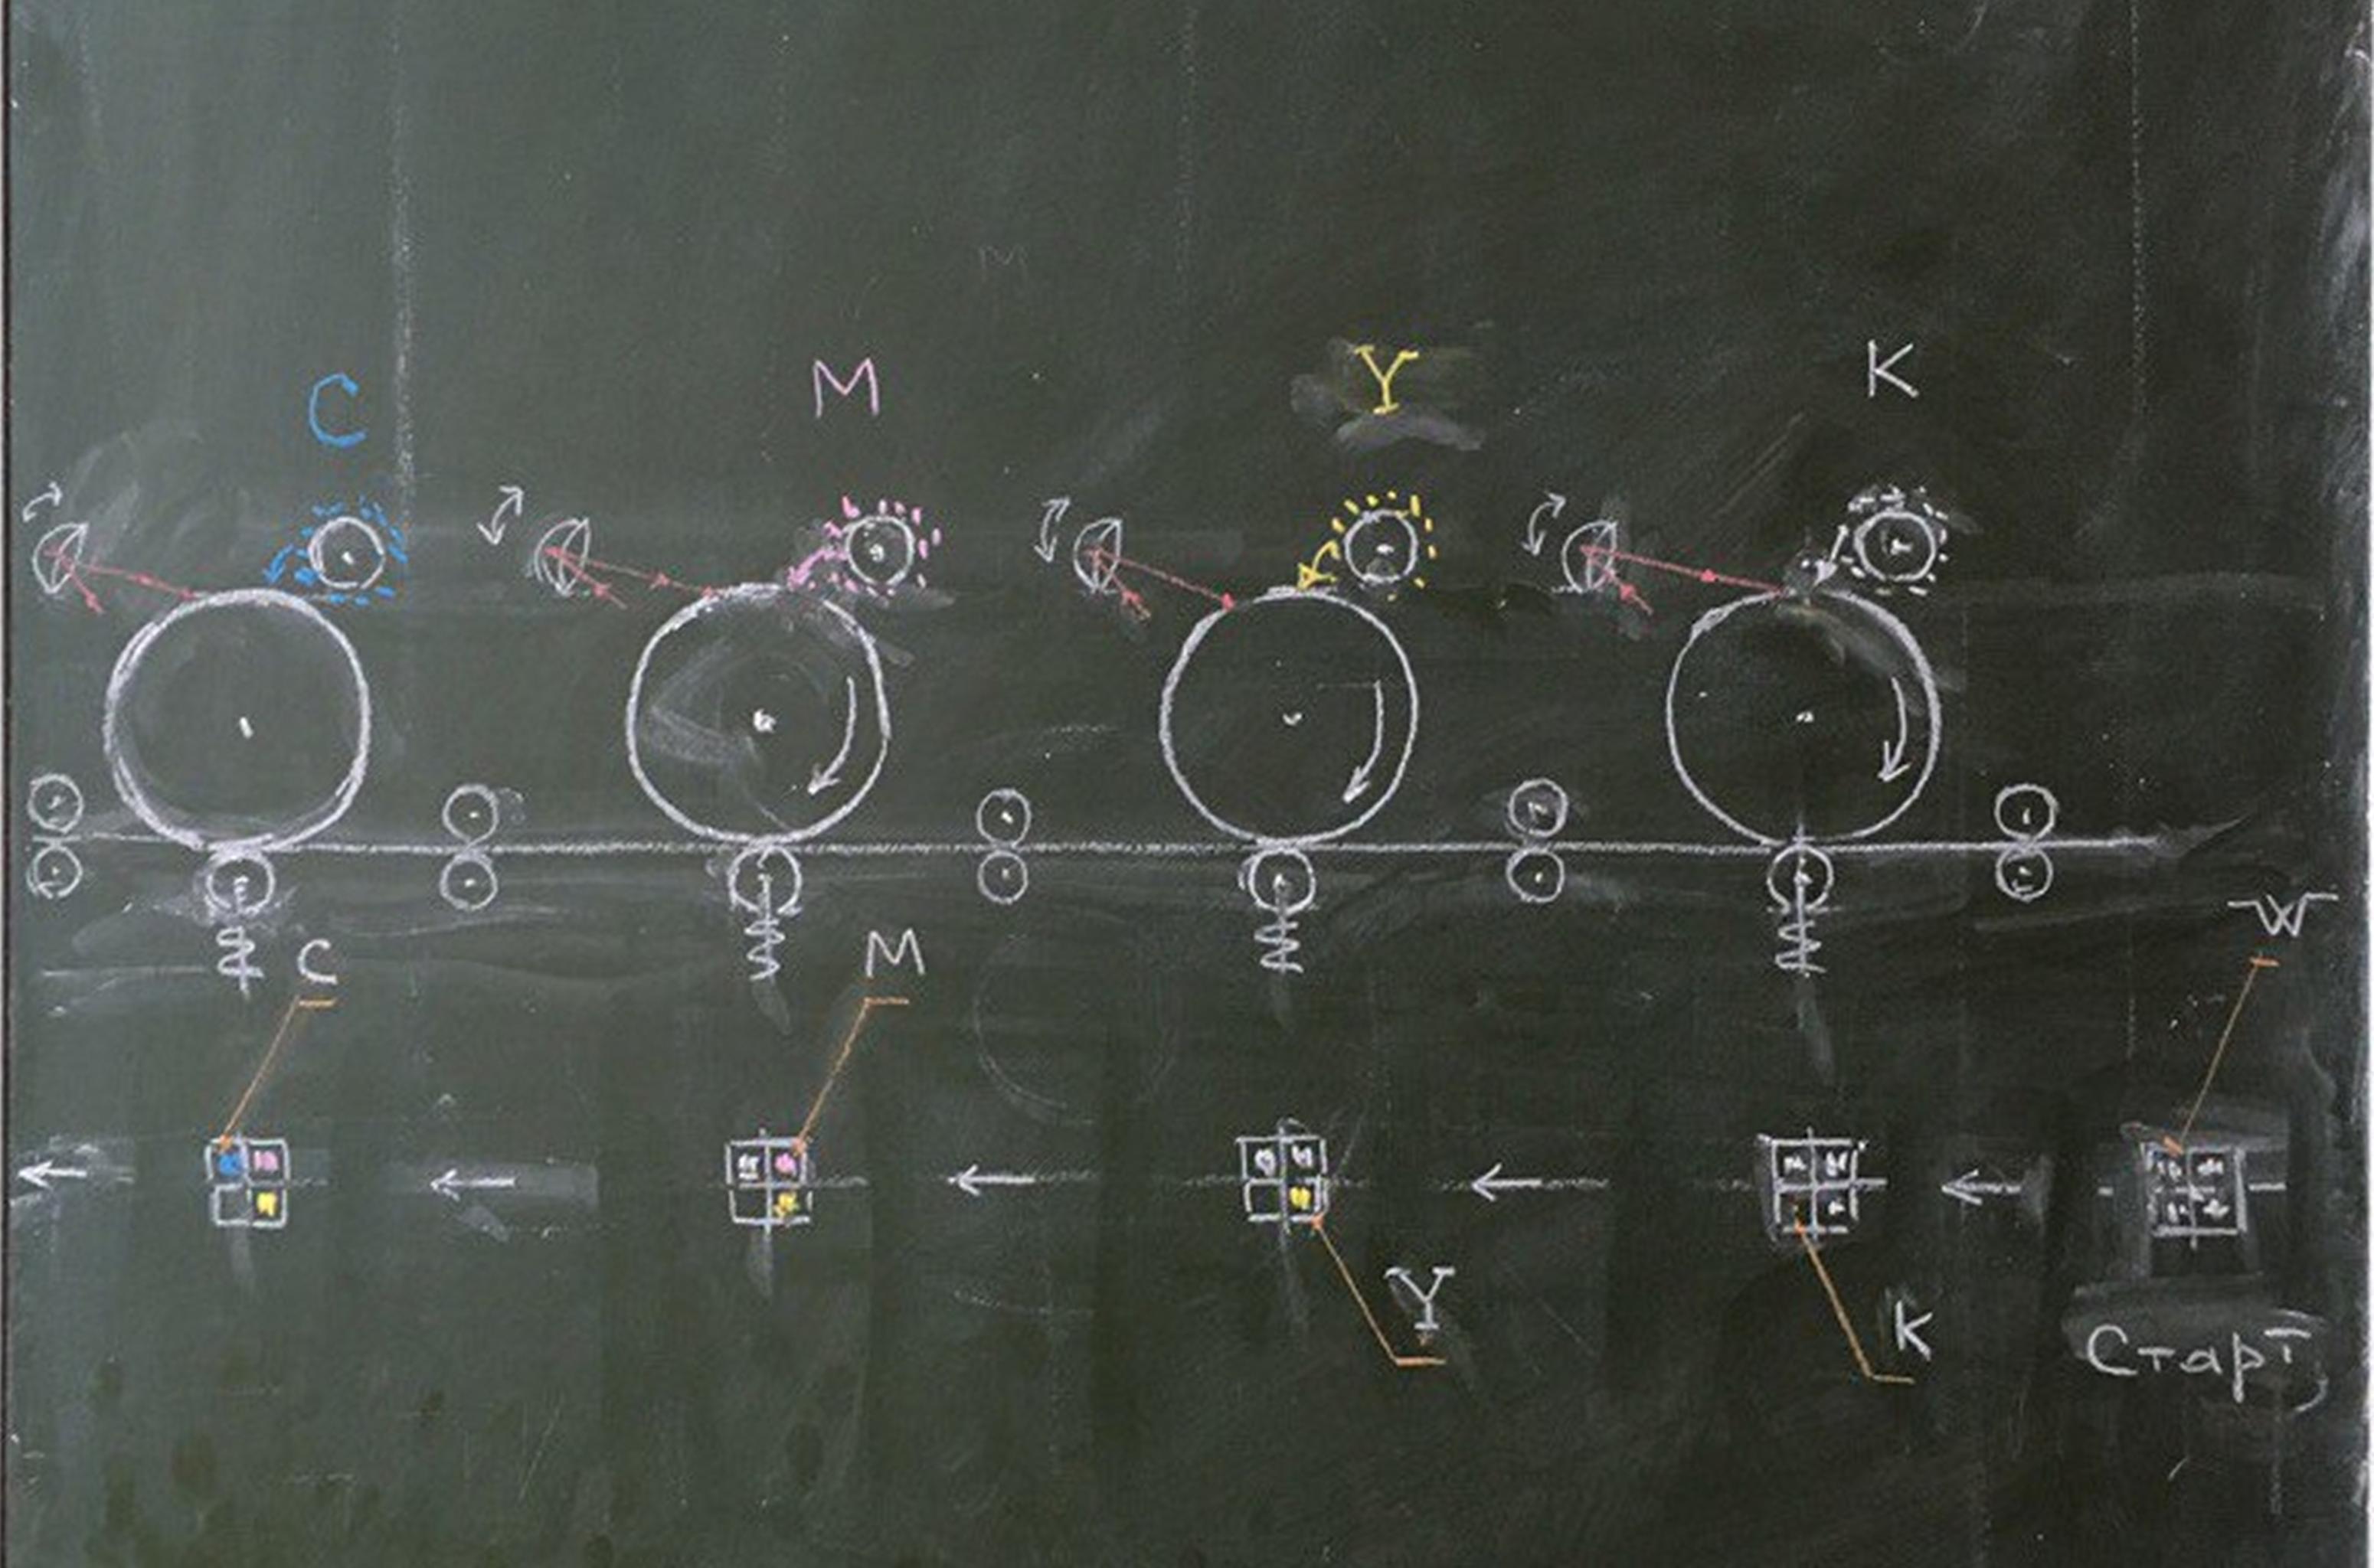 C M Y K
W
C M
Y K
Старт